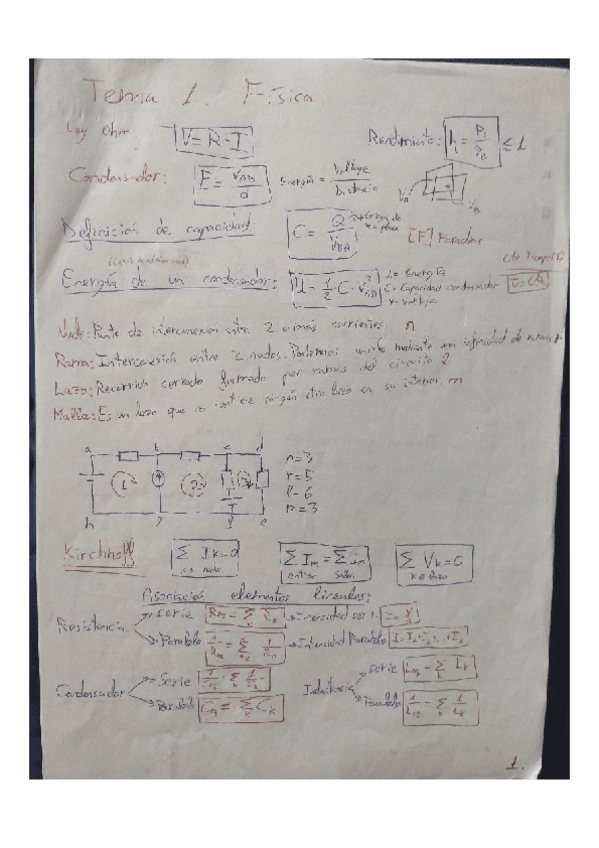 Tema 1. Física
Ley Ohm V = R · I
Rendimiento: ≤ 1
Condensador: E = V_AB / d Energía = Voltaje / Distancia
V_A V_B
Definición de capacidad: C = Q / V_BA [F] Faradios
Cte Tiempo
Energía de un condensador: U = 1/2 C · V²_AB U = Energía
C = Capacidad condensador
V = Voltaje
Nudo: Punto de interconexión entre 2 o más corrientes n
Rama: Interconexión entre 2 nudos. mediante una intensidad de
Lazo: Recorrido cerrado formado por ramas del circuito l
Malla: Es un lazo que no contiene ningún otro lazo en su interior. m
a b c d
1 2 3
n=3
r=5
l=6
=3
h g f e
Kirchhoff Σ I_k = 0 Σ I_m = Σ Σ V_k = 0
k ∈ nudo entran salen k ∈ lazo
Asociación elementos lineales:
Resistencia Serie R_eq = Σ_k R_k Intensidad
Paralelo 1/R_eq = Σ_k 1/R_k Intensidad Paralelo
Condensador Serie 1/C_eq = Σ_k 1/C_k
Paralelo C_eq = Σ_k C_k
Inductancia Serie L_eq = Σ_k L_k
Paralelo 1/L_eq = Σ_k 1/L_k
1.